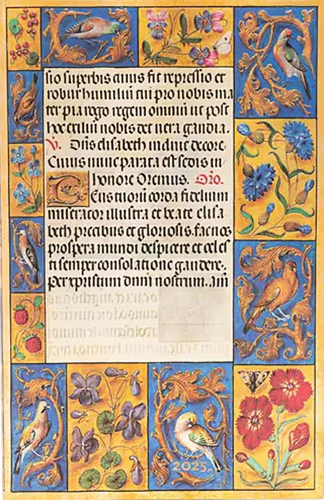 sio superbis cuius fit repressio et
robur humiliū cui pro nobis ma
ter pia rogo regem omniū ut post
hoc exiliū nobis det uera gaudia.
V. Dn̄s elisabeth induit decore.
Cuius nunc parata est sedes in
honore Oremus. Oro.
Deus tuorū corda fidelium
miserator illustra et beate elisa
beth precibus et gloriosis fac nos
prospera mundi despicere et celes
ti semper consolatione gaudere.
Per xpristum dnm̄ nostrum. Am̄
2025.